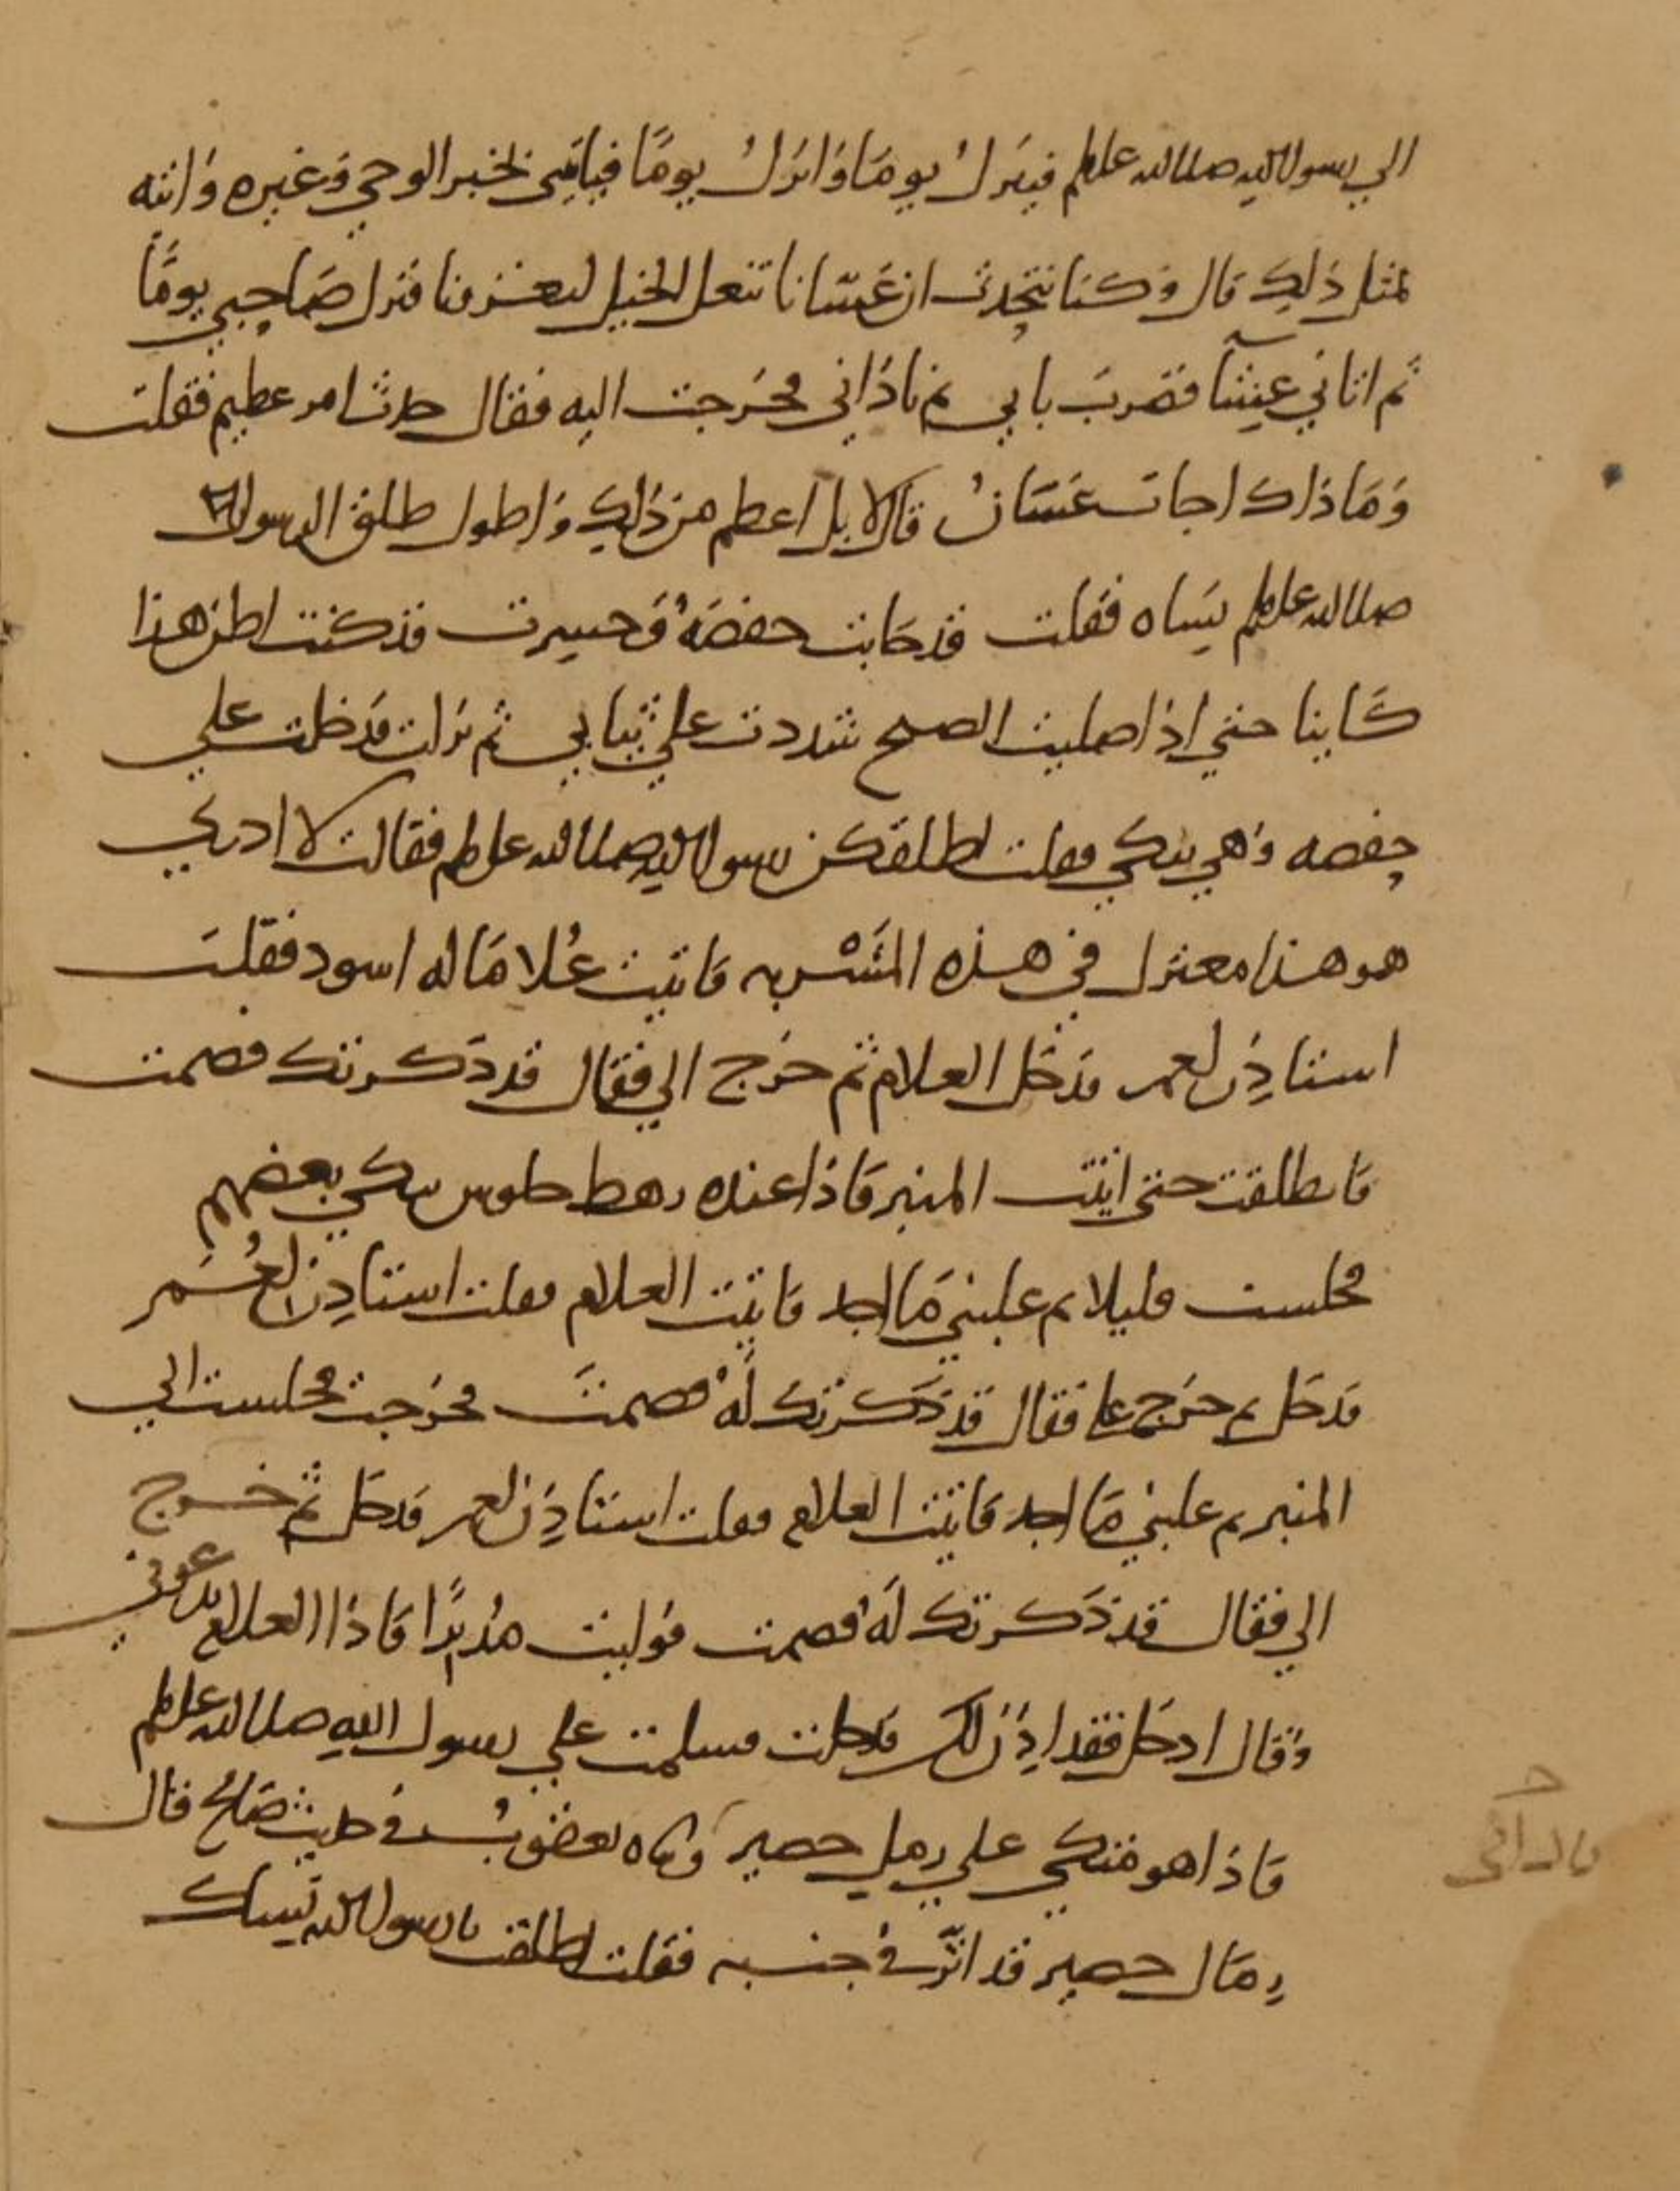 الي رسول الله صلى الله عليه وسلم فينزل يوما وانزل يوما فياتيني بخبر الوحي وغيره واتيه
بمثل ذلك قال وكنا نتحدث ان غسانا تنعل الخيل لتغزونا فنزل صاحبي يوما
ثم اتاني عشيا فضرب بابي ثم ناداني فخرجت اليه فقال حدث امر عظيم فقلت
وماذاك اجات غسان قال لا بل اعظم من ذلك واطول طلق الرسول
صلى الله عليه وسلم نساه فقلت قد خابت حفصة وخسرت قد كنت اظن هذا
كاينا حتي اذا صليت الصبح شددت علي ثيابي ثم نزلت فدخلت علي
حفصه وهي تبكي فقلت اطلقكن رسول الله صلى الله عليه وسلم فقالت لا ادري
هو هذا معتزل في هذه المشربه فاتيت غلاما له اسود فقلت
استاذن لعمر فدخل الغلام ثم خرج الي فقال قد ذكرتك فصمت
فانطلقت حتى اتيت المنبر فاذا عنده رهط جلوس يبكي بعضهم
فجلست قليلا ثم غلبني ما اجد فاتيت الغلام فقلت استاذن لعمر
فدخل ثم خرج علي فقال قد ذكرتك له فصمت فخرجت فجلست الي
المنبر ثم غلبني ما اجد فاتيت الغلام فقلت استاذن لعمر فدخل ثم خرج
الي فقال قد ذكرتك له فصمت فوليت مدبرا فاذا الغلام يدعوني
وقال ادخل فقد اذن لك فدخلت فسلمت علي رسول الله صلى الله عليه وسلم
فاذا هو متكي علي رمل حصير وناه يعقوب في حديث صالح قال
رمال حصير قد اثر في جنبه فقلت اطلقت يا رسول الله نساك